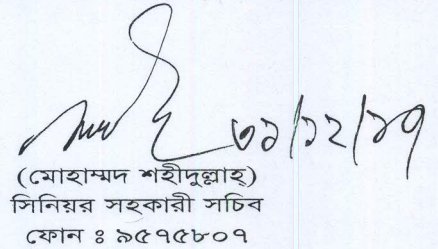 ৩১/১২/১৭
(মোহাম্মদ শহীদুল্লাহ্)
সিনিয়র সহকারী সচিব
ফোন ঃ ৯৫৭৫৮০৭